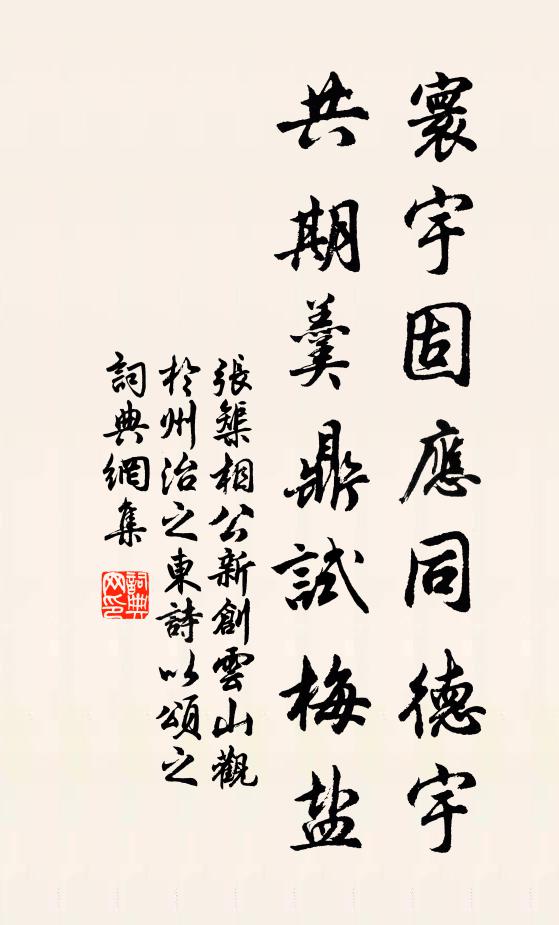 寰宇固應同德宇
共期羹鼎試梅盐
張榘相公新創雲山觀
於州治之東詩以頌之
詞典網集
詞典网印